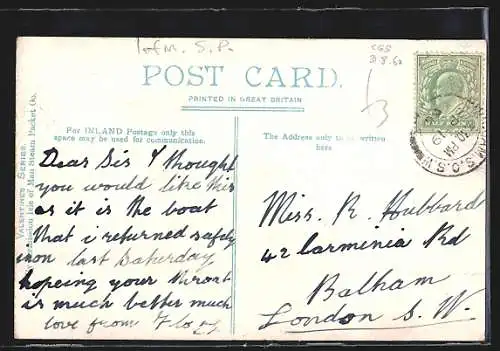 I of M. S. P.
CGS
POST CARD.
PRINTED IN GREAT BRITAIN
For INLAND Postage only this
space may be used for communication.
The Address only to be written
here
VALENTINES SERIES.
Isle of Man Steam Packet Co.
Dear Sis I thought
you would like this
as it is the boat
that i returned safely
in on last Saturday
hopeing your throat
is much better much
love from
Miss. R. Hubbard
42 Larminia Rd
Balham
London S. W.
S.O. S.W.
30 PM